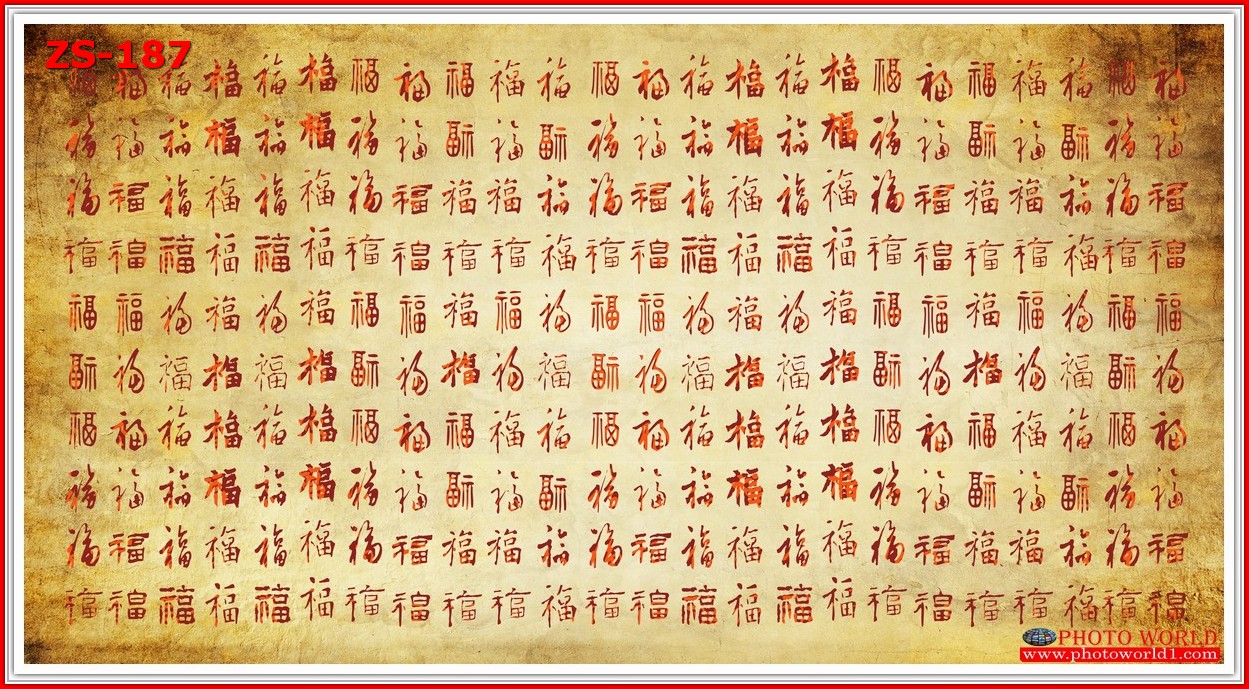 ZS-187
福福福福福福福福福福福福福福福福福福福福福福福福
福福福福福福福福福福福福福福福福福福福福福福福福
福福福福福福福福福福福福福福福福福福福福福福福福
福福福福福福福福福福福福福福福福福福福福福福福福
福福福福福福福福福福福福福福福福福福福福福福福福
福福福福福福福福福福福福福福福福福福福福福福福福
福福福福福福福福福福福福福福福福福福福福福福福福
福福福福福福福福福福福福福福福福福福福福福福福福
福福福福福福福福福福福福福福福福福福福福福福福福
福福福福福福福福福福福福福福福福福福福福福福福福
PHOTO WORLD
www.photoworld1.com